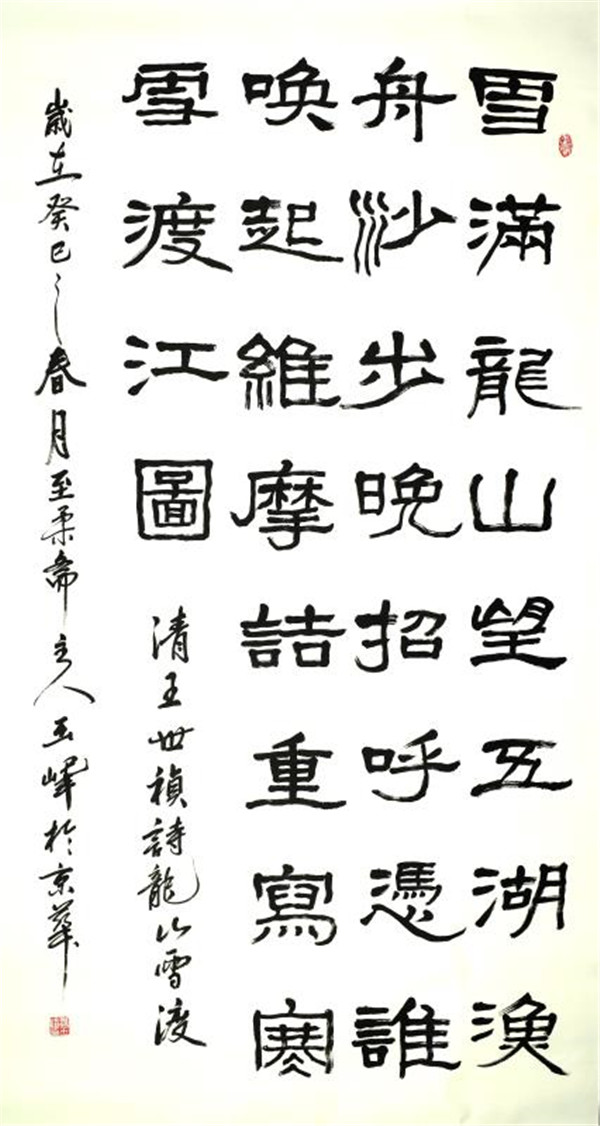 雪滿龍山望五湖漁
舟沙步晚招呼憑誰
喚起維摩詰重寫寒
雪渡江圖
清王世禎詩龍山雪渡
歲在癸巳之春月至柔齋主人玉峰於京華